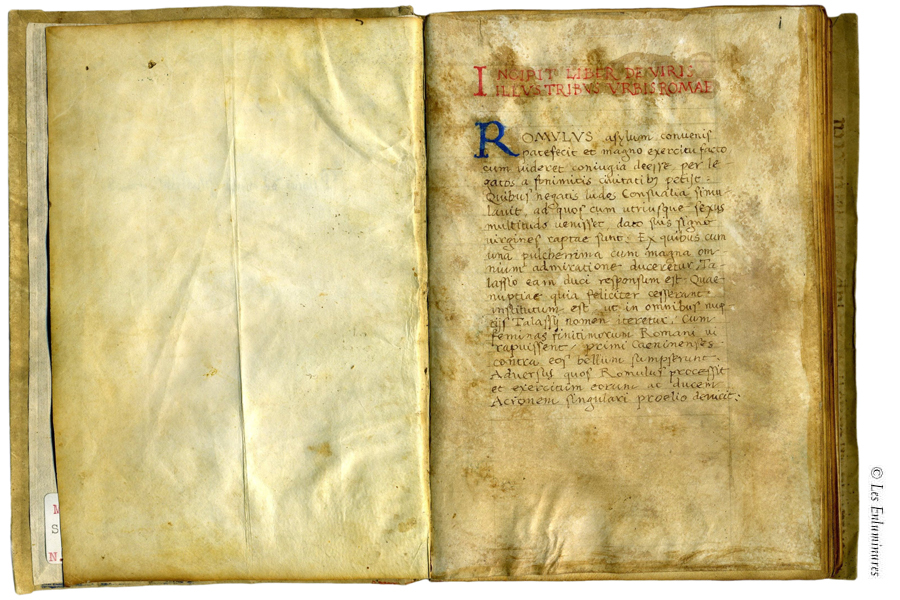 i
INCIPIT LIBER DE VIRIS
ILLVSTRIBVS VRBIS ROMAE
ROMVLVS asylum convenis
patefecit et magno exercitu facto
cum videret coniugia deesse per le
gatos a finimitis civitatibꝫ petiit.
Quibus negatis ludos Consualia simu
lavit, ad quos cum utriusque sexus
multitudo venisset, dato suis signo
virgines raptae sunt. Ex quibus cum
una pulcherrima cum magna om
nium admiratione duceretur, Ta
lassio eam duci responsum est. Quae
nuptiae quia feliciter cesserant
institutum est, ut in omnibus nup
tijs Talassij nomen iteretur. Cum
feminas finitimorum Romani vi
rapuissent, primi Caeninenses
contra eos bellum sumpserunt.
Adversus quos Romulus processit
et exercitum eorum ac ducem
Acronem singulari proelio devicit.
M
S
N.
© Les Enluminures